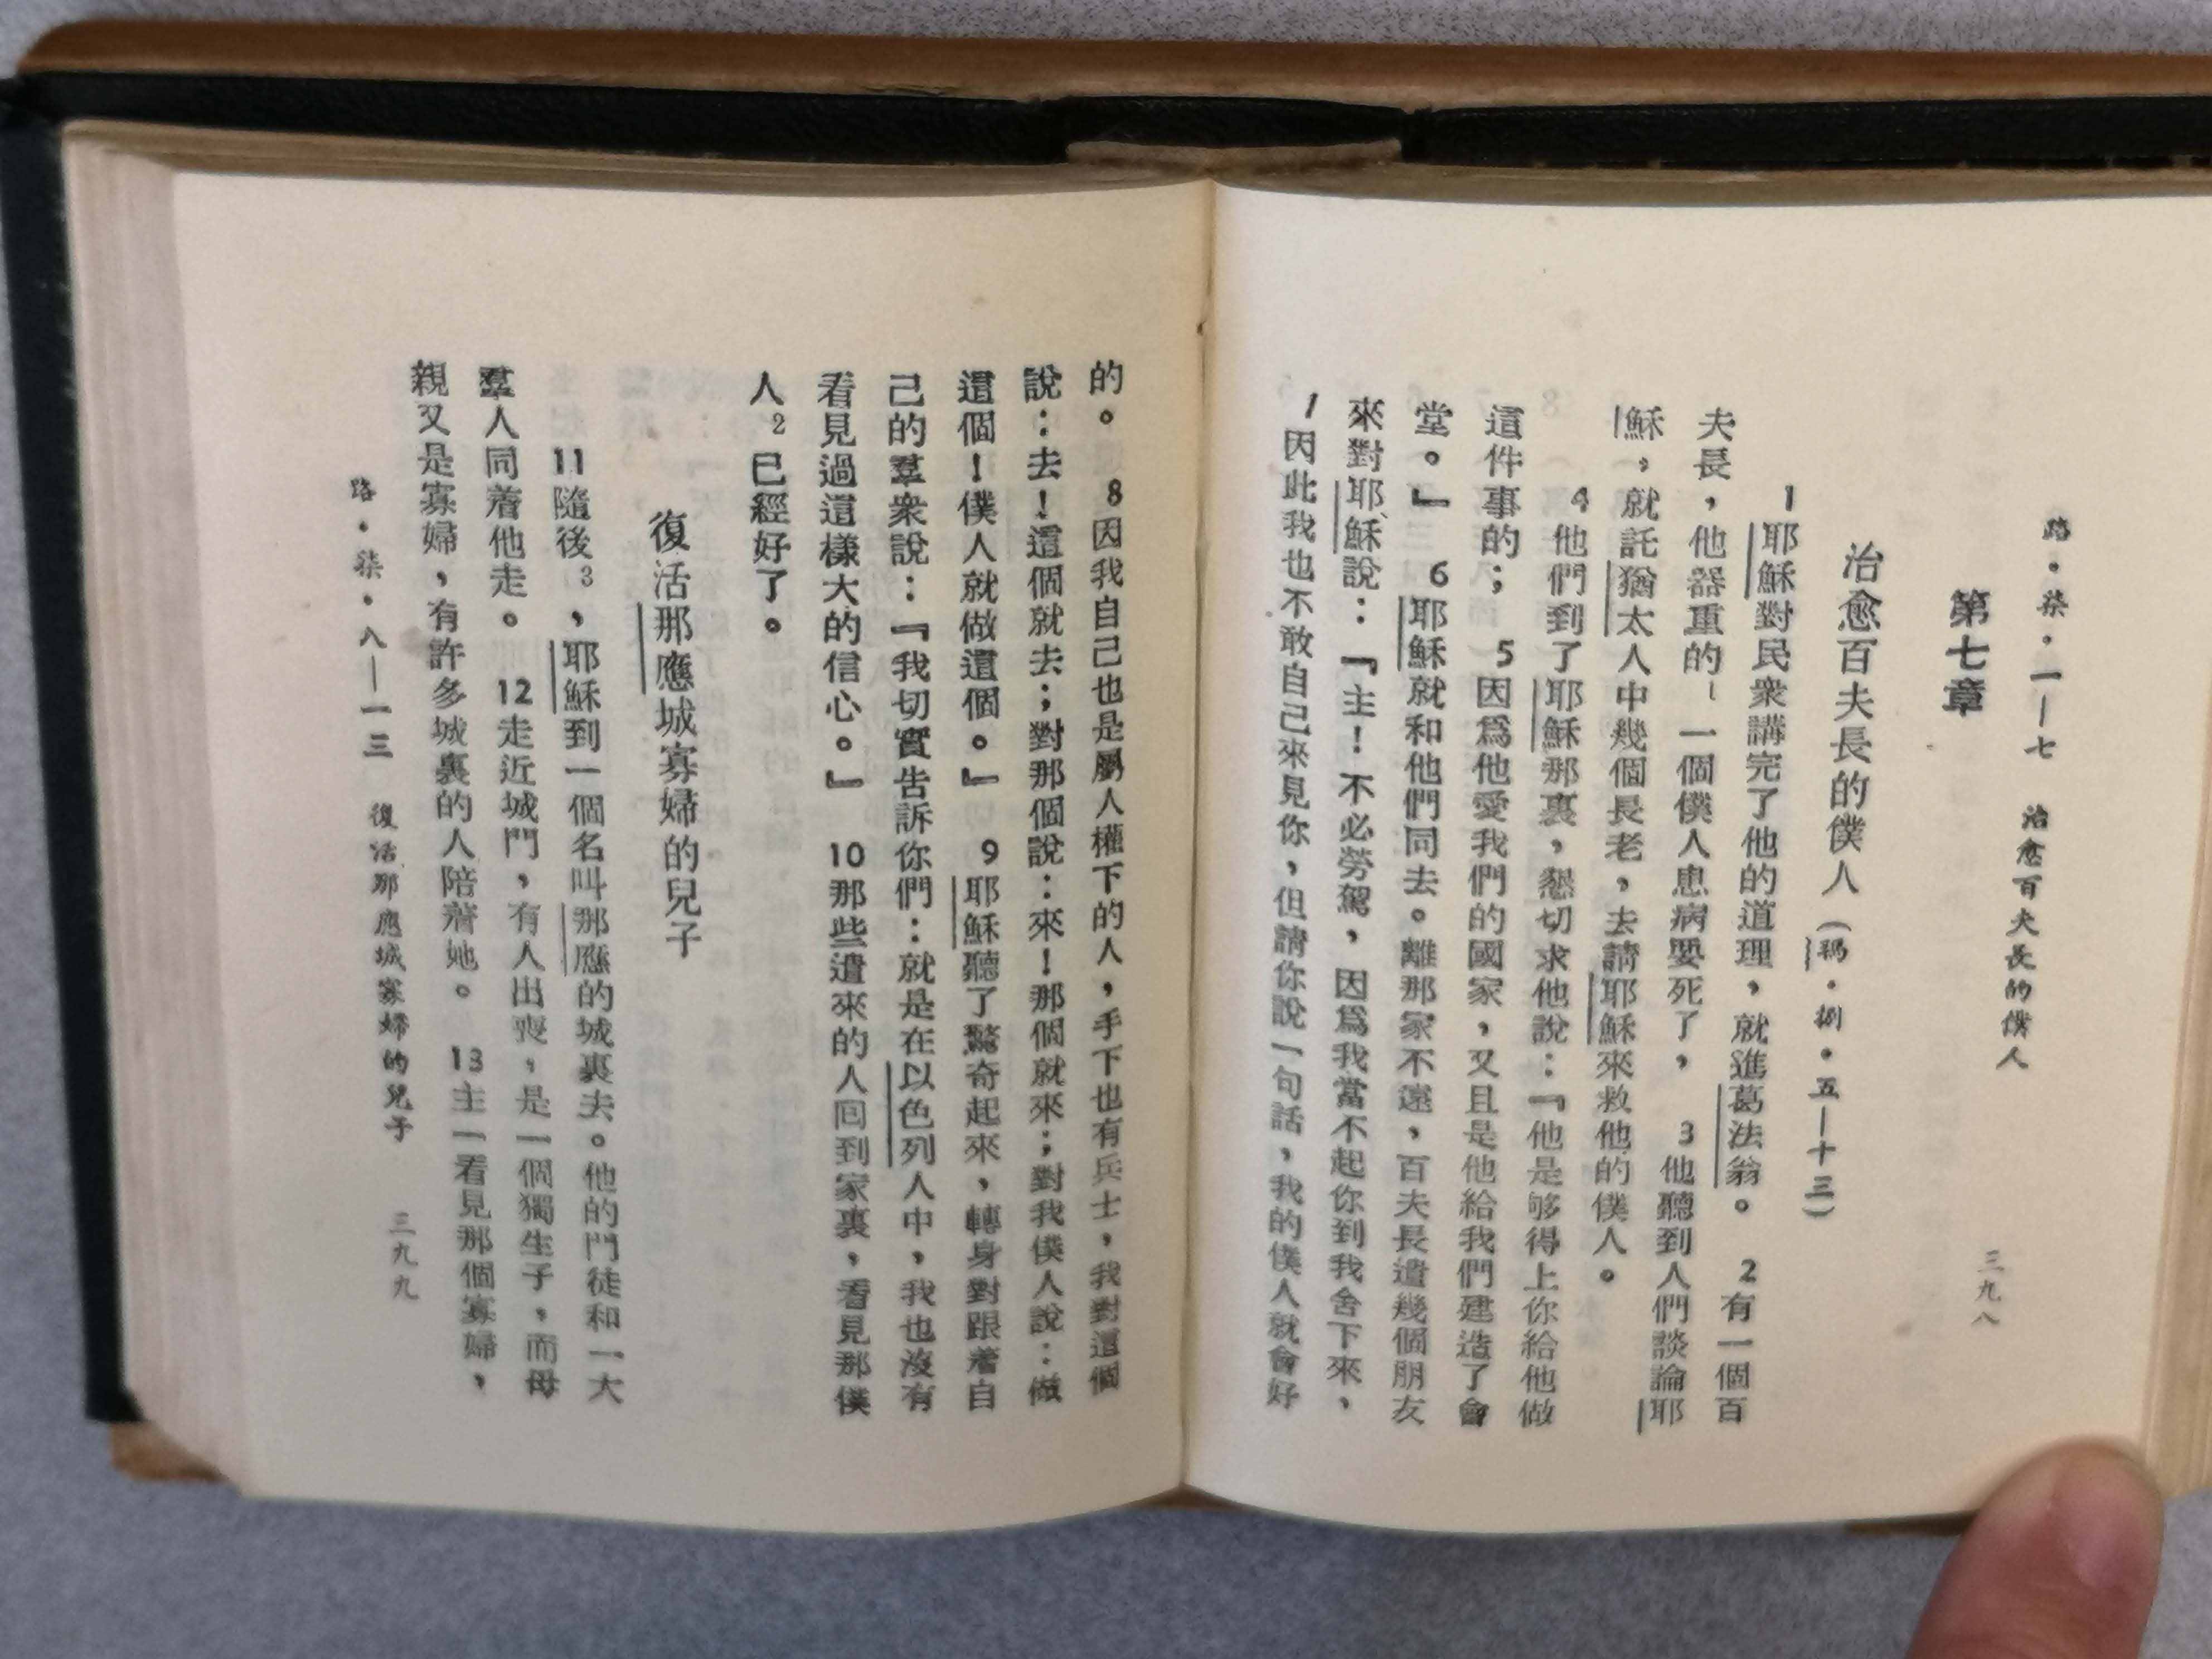 路・柒・一—七　治愈百夫長的僕人　三九八
第七章
治愈百夫長的僕人（瑪・捌・五—十三）
1耶穌對民衆講完了他的道理，就進葛法翁。　2有一個百
夫長，他器重的1一個僕人患病要死了，　3他聽到人們談論耶
穌，就託猶太人中幾個長老，去請耶穌來救他的僕人。
4他們到了耶穌那裏，懇切求他說：『他是够得上你給他做
這件事的；　5因爲他愛我們的國家，又且是他給我們建造了會
堂。』　6耶穌就和他們同去。離那家不遠，百夫長遣幾個朋友
來對耶穌說：『主！不必勞駕，因爲我當不起你到我舍下來，
7因此我也不敢自己來見你，但請你說一句話，我的僕人就會好
的。　8因我自己也是屬人權下的人，手下也有兵士，我對這個
說：去！這個就去；對那個說：來！那個就來；對我僕人說：做
這個！僕人就做這個。』　9耶穌聽了驚奇起來，轉身對跟着自
己的羣衆說：『我切實告訴你們：就是在以色列人中，我也沒有
看見過這樣大的信心。』　10那些遣來的人回到家裏，看見那僕
人2已經好了。
復活那應城寡婦的兒子
11隨後3，耶穌到一個名叫那應的城裏去。他的門徒和一大
羣人同着他走。　12走近城門，有人出喪，是一個獨生子，而母
親又是寡婦，有許多城裏的人陪着她。　13主一看見那個寡婦，
路・柒・八—一三　復活那應城寡婦的兒子　三九九